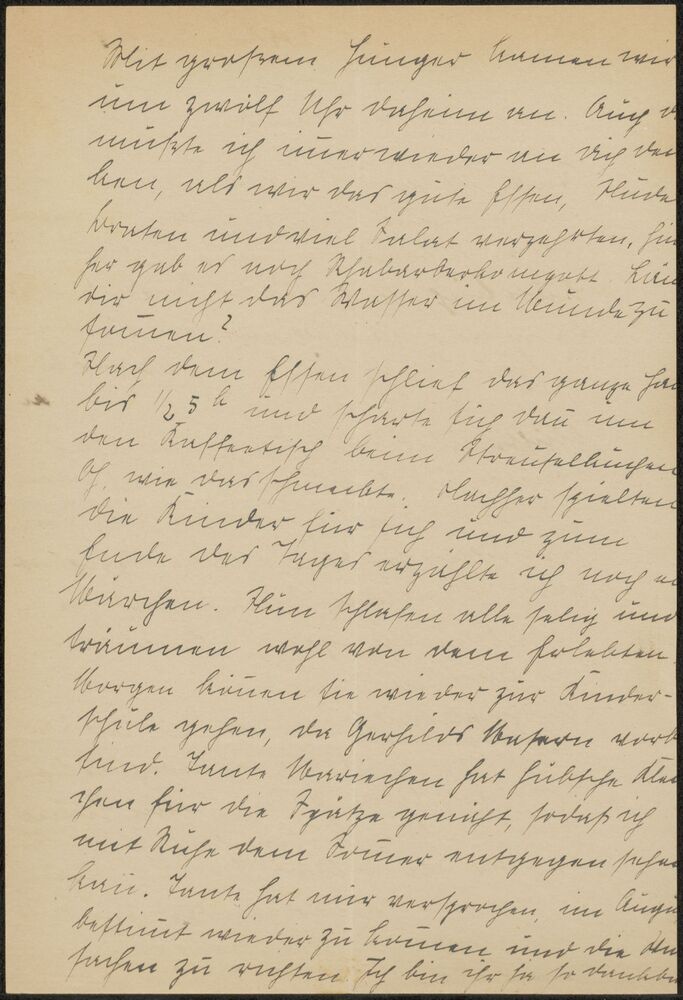 Mit großem Hunger kamen wir
um zwölf Uhr daheim an. Auch d
mußte ich im̅er wieder an dich den
ken, als wir das gute Essen, Nude
braten und viel Salat verzehrten, hin
her gab es noch Rhabarberkompott. Län
dir nicht das Wasser im Munde zu
sam̅en?
Nach dem Essen schlief das ganze Hau
bis 1/2 5 h und scharte sich dan̅ um
den Kaffeetisch beim Streuselkuchen
Oh, wie das schmeckte. Nachher spielten
die Kinder für sich und zum
Ende des Tages erzählte ich noch ei
Märchen. Nun schlafen alle selig und
träumen wohl von dem Erlebten.
Morgen kön̅en sie wieder zur Kinder-
schule gehen, da Gerhilds Masern vorb
sind. Tante Mariechen hat hübsche Klei
chen für die Spatze genäht, sodaß ich
mit Ruhe dem Som̅er entgegen sehen
kan̅. Tante hat mir versprochen, im Augu
bestim̅t wieder zu kom̅en und die
sachen zu richten. Ich bin ihr ja so dankba